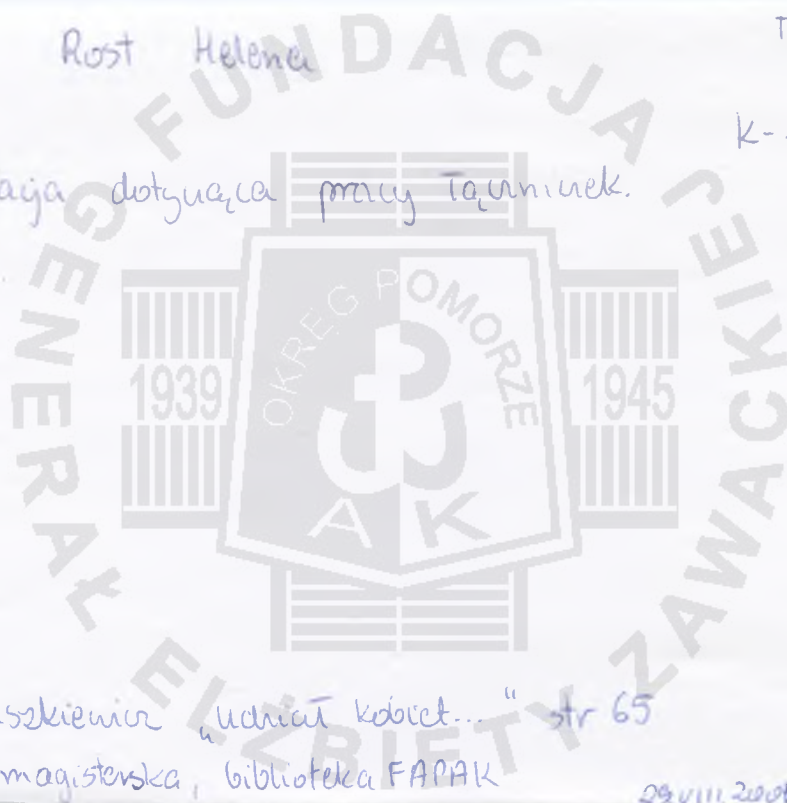 Rost Helena
K-
acja dotycząca pracy łączniczek.
szkiewicz „udział kobiet..." str 65
magisterska, biblioteka FAPAK
FUNDACJA
GENERAŁ ELŻBIETY ZAWACKIEJ
OKRĘG POMORZE
1939 1945
AK